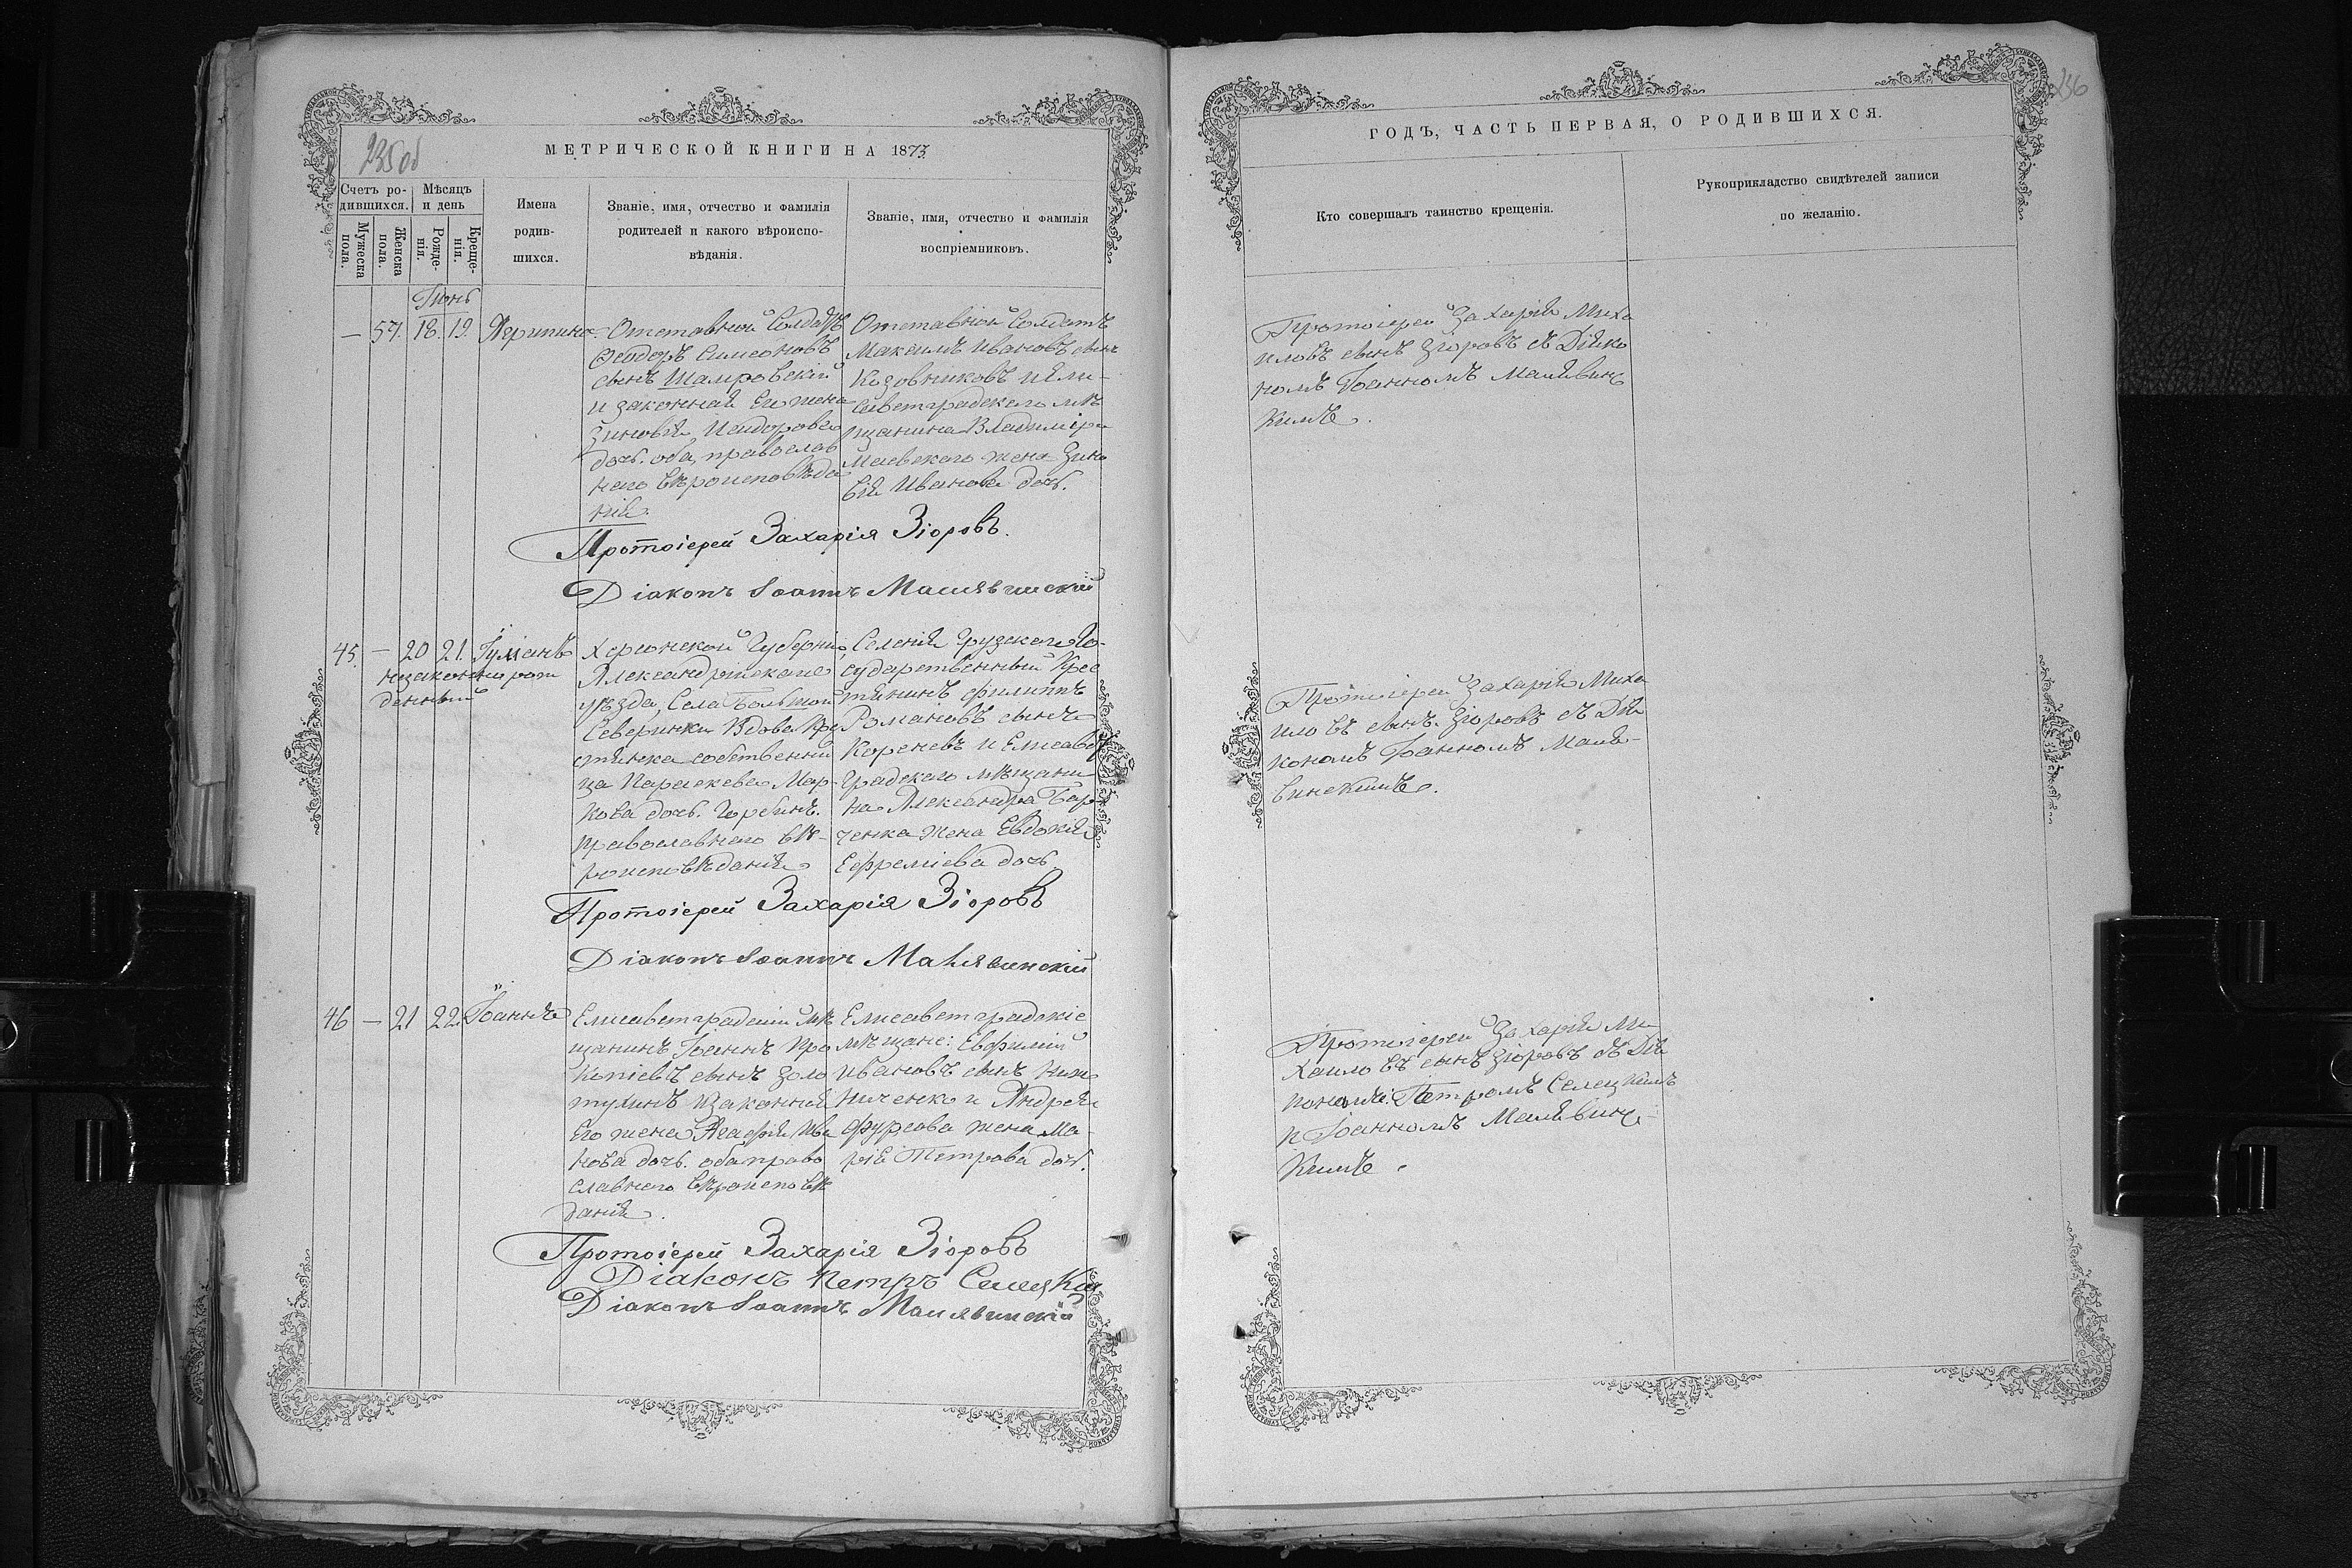 235об
МЕТРИЧЕСКОЙ КНИГИ НА 1873
Счетъ ро-
дившихся.
Мѣсяцъ
и день
Мужеска
пола.
Женска
пола.
Рожде-
нія.
Креще-
нія.
Имена
родив-
шихся.
Званіе, имя, отчество и фамилія
родителей и какого вѣроиспо-
вѣданія.
Званіе, имя, отчество и фамилія
воспріемниковъ.
Іюнь
— 57. 18. 19. Агрипина
Отставной Солдатъ
Ѳеодоръ Симеоновъ
сынъ
и законная Его жена
Зиновія Исидорова
дочь. оба православ
наго вѣроисповѣда
нія.
Отставной Солдатъ
Максимъ Ивановъ сынъ
Козовниковъ и Ели-
саветградскаго мѣ
щанина Владиміра
Маевскаго жена Зино
вія Иванова дочь.
Протоіерей Захарія Зіоровъ.
Діаконъ Іоаннъ Малявинскій
45. — 20 21. Іуліанъ
незаконнорож
денный
Херсонской Губерніи,
Александрійскаго
уѣзда, Села Большой
Северинки Вдова Кре
стьянка собственни
ца Параскева Мар-
кова дочь.
православнаго вѣ-
роисповѣданія
Селенія Грузскаго Го-
сударственный Крес
тьянинъ Филиппъ
Романовъ сынъ
Кореневъ и Елисавет
градскаго мѣщани
на Александра
ченка жена Евдокія
Ефремiева дочь
Протоіерей Захарія Зіоровъ
Діаконъ Іоаннъ Малявинскій
46 — 21 22. Іоаннъ
Елисаветградскій мѣ
щанинъ Іоаннъ Про
копіевъ сынъ Золо
тухинъ и законная
Его жена Агафія Ива
нова дочь. оба право
славнаго вѣроисповѣ
данія.
Елисаветградскіе
мѣщане: Евфимій
Ивановъ сынъ
ниченко и Андрея
Фурсова жена Ма-
рія Петрова дочь.
Протоіерей Захарія Зіоровъ
Діаконъ Петръ Селецкій
Діаконъ Іоаннъ Малявинскій
236
ГОДЪ, ЧАСТЬ ПЕРВАЯ, О РОДИВШИХСЯ.
Кто совершалъ таинство крещенія.
Рукоприкладство свидѣтелей записи
по желанію.
Протоіерей Захарія Миха
иловъ сынъ Зіоровъ съ Діако
номъ Іоанномъ Малявинс
кимъ.
Протоіерей Захарія Миха
иловъ сынъ. Зіоровъ съ Діа
кономъ Іоанномъ Маля-
винскимъ.
Протоіерей Захарія Ми
хаиловъ сынъ Зіоровъ съ Діа
конами: Петромъ Селецкимъ
и Іоанномъ Малявинс
кимъ.